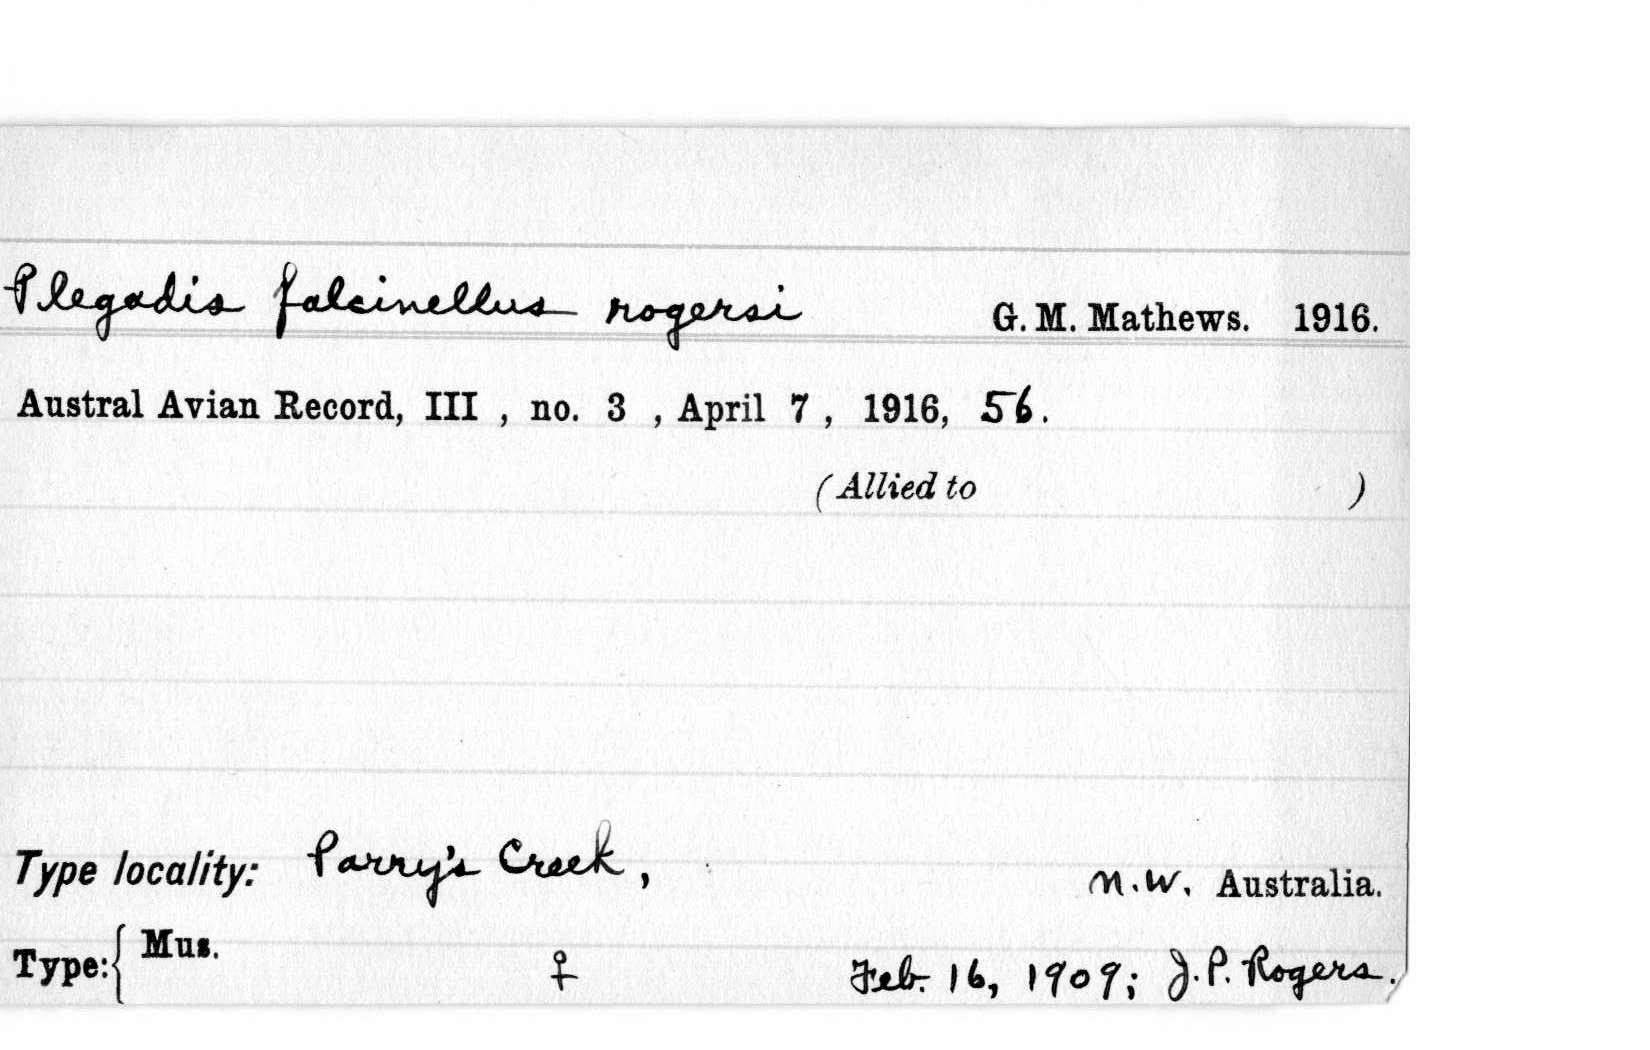 Plegadis falcinellus rogersi G. M. Mathews. 1916.
Austral Avian Record, III , no. 3 , April 7 , 1916, 56.
(Allied to )
Type locality: Parry's Creek, N.W. Australia.
Type:{ Mus. ♀ Feb. 16, 1909; J. P. Rogers.